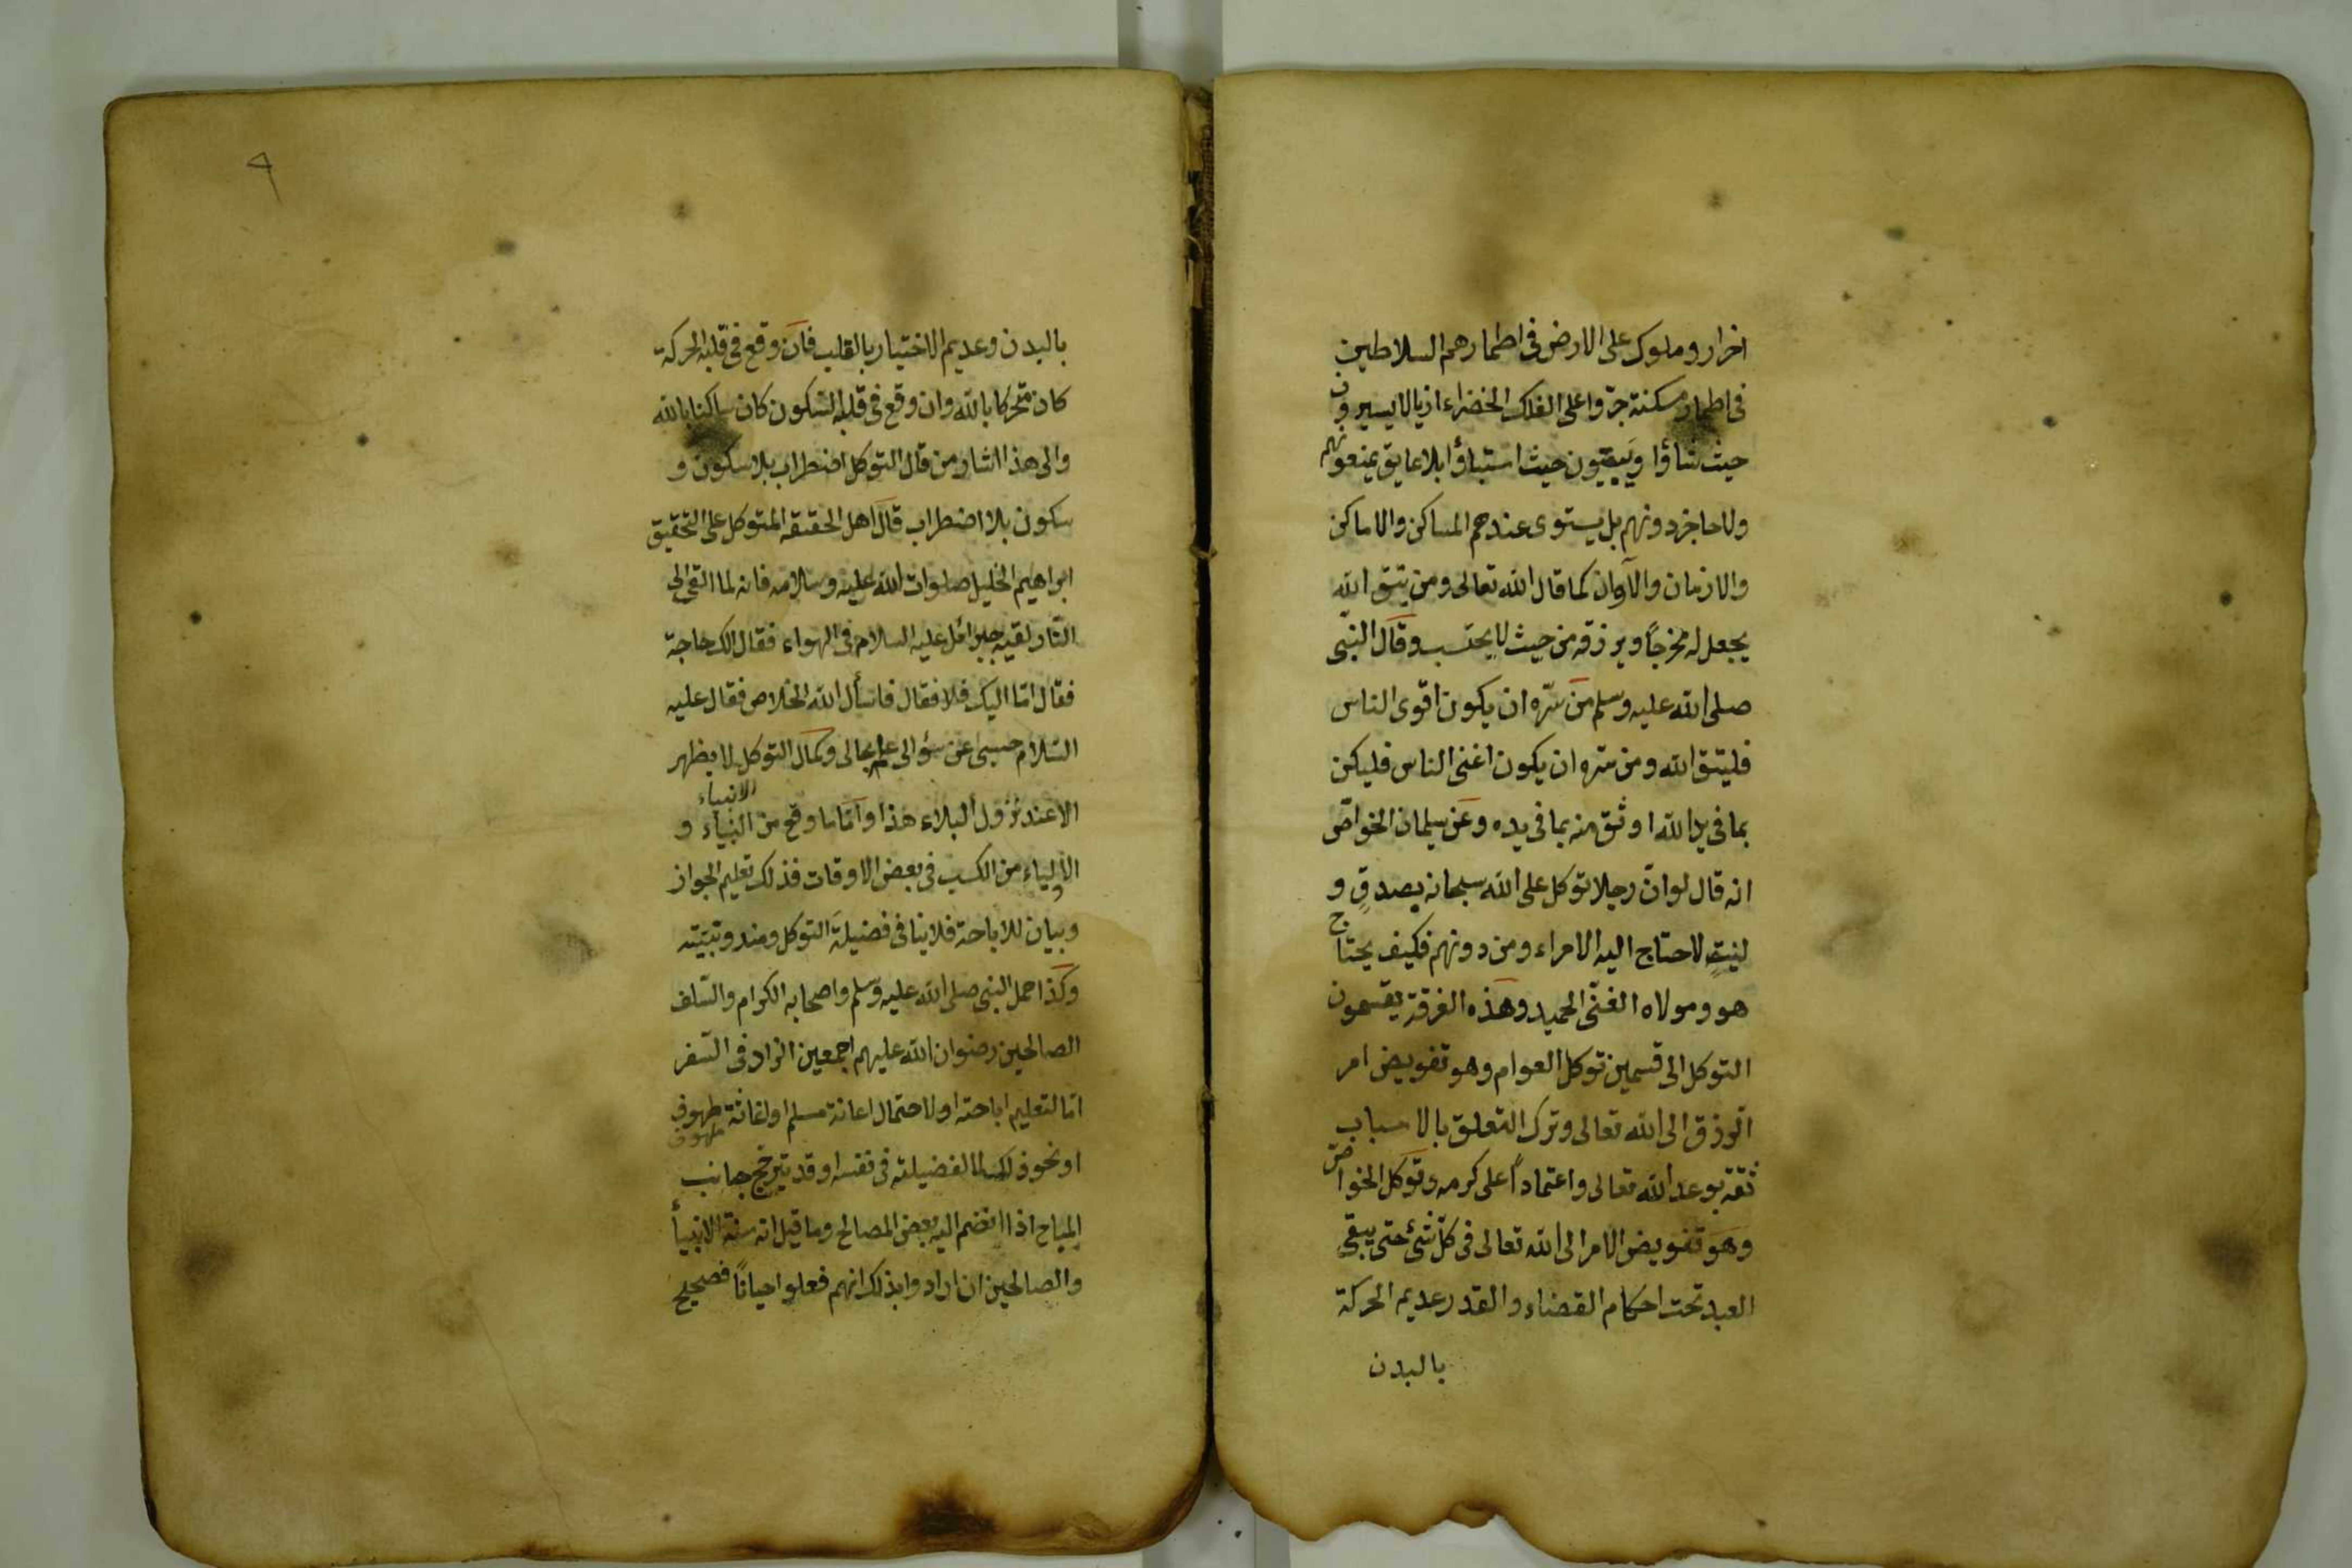 احرار وملوك على الارض فى اطمارهم السلاطين
فى اطمار مسكنة جرّوا على الفلك الخضراء اذيالا يسيرون
حيث شاؤا ويَبيتون حيث استباؤا بلا عايق يمنعونهم
ولا حاجز دونهم بل يستوى عندهم المساكن والاماكن
والازمان والآوان كما قال الله تعالى ومن يتق الله
يجعل له مخرجاً ويرزقه من حيث لا يحتسب وقال النبّى
صلى الله عليه وسلم من سّره ان يكون اقوى الناس
فليتق الله ومن سّره ان يكون اغنى الناس فليكن
بما فى يد الله اوثق منه بما فى يده وعن سليمان الخواصّ
انه قال لوانّ رجلا توكل على الله سبحانه بصدقٍ و
لنيةٍ لاحتاج اليه الامراء ومن دونهم فكيف يحتاج
هو ومولاه الغنّى الحميد وهذه الفرقة يقسمون
التوكل الى قسمين توكل العوام وهو تفويض امر
الّرزق الى الله تعالى وترك التعلق بالاسباب
ثقة بوعد الله تعالى واعتماداً على كرمه وتوكل الخواصّ
وهو تفويض الامر الى الله تعالى فى كلّ شئ حتى يبقى
العبد تحت احكام القضاء والقدر عديم الحركة
بالبدن
٩
بالبدن وعديم الاختيار بالقلب فان وقع فى قلبه الحركة
كان متحركا بالله وان وقع فى قلبه السّكون كان ساكنا بالله
والى هذا اشار من قال التوكل اضطراب بلا سكون و
سكون بلا اضطراب قال اهل الحقيقه المتوكل على التحقيق
ابراهيم الخليل صلوات الله عليه وسلامه فانه لما القى الى
النّار لقيه جبرائل عليه السلام فى الهواء فقال الك حاجة
فقال امّا اليك فلا فقال فاسأل الله الخلاص فقال عليه
السّلام حسبى عن سؤالى علم بحالى وكمال التوكل لا يظهر
الا عند نزول البلاء هذا وامّا ما وقع من النبياء و
الانبياء
الاولياء من الكسب فى بعض الاوقات فذلك تعليم الجواز
وبيان للاباحة فلا ينافى فضيلة التوكل ومندوبيّته
وكذا حمل النبى صلى الله عليه وسلم واصحابه الكرام والسّلف
الصالحين رضوان الله عليهم اجمعين الزاد فى السّفر
امّا لتعليم اباحته او لاحتمال اعانة مسلم او لغاثة طهوف
ملهوف
او نحو ذلك لا لفضيلته فى نفسه وقد يترجّح جانب
المباح اذا انضم اليه بعض المصالح وما قيل انه سنة الانبيأ
والصالحين ان ارادوا بذلك انهم فعلوا احيانًا فصحيح